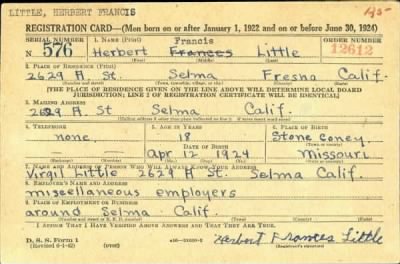 LITTLE, HERBERT FRANCIS
REGISTRATION CARD—(Men born on or after January 1, 1922 and on or before June 30, 1924)
SERIAL NUMBER 1. NAME (Print) ORDER NUMBER
Francis
N 576 Herbert Frances Little 12612
2. PLACE OF RESIDENCE (Print)
2629 A St. Selma Fresno Calif.
[THE PLACE OF RESIDENCE GIVEN ON THE LINE ABOVE WILL DETERMINE LOCAL BOARD
JURISDICTION; LINE 2 OF REGISTRATION CERTIFICATE WILL BE IDENTICAL]
3. MAILING ADDRESS
2629 A St Selma Calif.
4. TELEPHONE 5. AGE IN YEARS 6. PLACE OF BIRTH
none 18 Stone Coney
DATE OF BIRTH
Apr 12 1924 Missouri
7. NAME AND ADDRESS OF PERSON WHO WILL ALWAYS KNOW YOUR ADDRESS
Virgil Little 2629 A St. Selma Calif.
8. EMPLOYER'S NAME AND ADDRESS
miscellaneous employers
9. PLACE OF EMPLOYMENT OR BUSINESS
around Selma Calif.
I AFFIRM THAT I HAVE VERIFIED ABOVE ANSWERS AND THAT THEY ARE TRUE.
D. S. S. Form 1
(Revised 6-1-42)
Herbert Frances Little